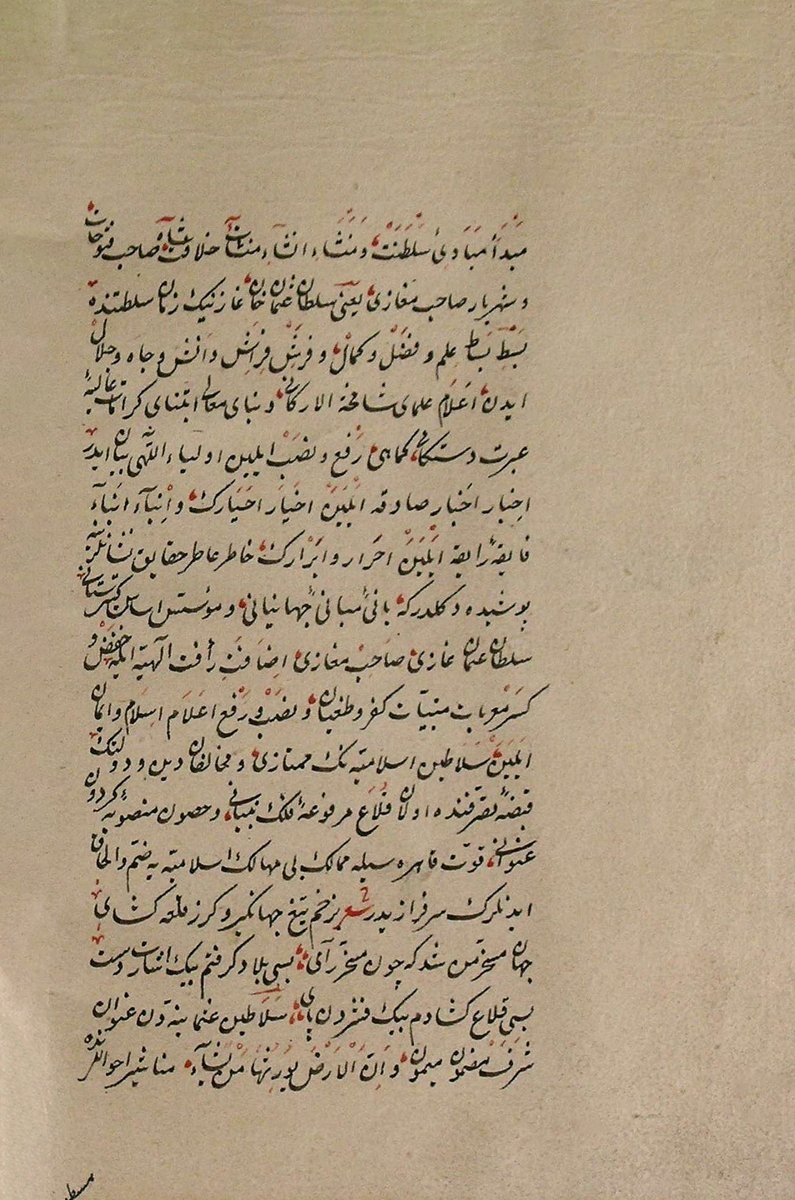 مبدأ مبادئ سلطنت ومنشاء انشاء منشآت خلافتپناه صاحب فتوحات
وشهریار صاحب مغازی یعنی سلطان عثمان خان غازنیك زمان سلطنتنده
بسط بساط علم وفضل وكمال وفرش فراش دانش وجاه وجلال
ایدن اعلام علمای شامخة الاركانی وبنای معالی ابتنای كرامات عالیهٔ
عبرت دستكاه كماهی رفع ونصب ایلیین اولیاء اللهی بیان ایدر
اخبار اخبار صادقه ایلیین اخیار اختیارك وانباء انباء
فایقهٔ رایقه ایلیین احرار وابرارك خاطر عاطر حقایق
پوشیده دكلدر كه بانئ مبانئ جهانبانی ومؤسس اساس كیتیستانی
سلطان عثمان غازی صاحب مغازی اضافت رأفت الهیه ایله خفض و
كسر معربات مبنیات كفر وطغیان ونصب ورفع اعلام اسلام وایمان
ایلیین سلاطین اسلامیه نك ممتازی ومخالفان دین ودولتك
قبضهٔ تصرفنده اولان قلاع مرفوعهٔ فلك بنیانی وحصون منصوبهٔ كردون
عنوانی قوت قاهره سیله ممالك بی مهالك اسلامیه یه ضم والحاق
ایدنلرك سرفرازیدر شعر بزخم تیغ جهانكیر وكرز قلعه كشای
جهان مسخر من شد كه چون مسخر رآی بسی بلاد كرفتم بیك اشارت دست
بسی قلاع كشادم بیك فشردن پای سلاطین عثمانیه دن عنوان
شرف مضمون میمون وان الارض یورثها من یشآء مناشیر احوالنده